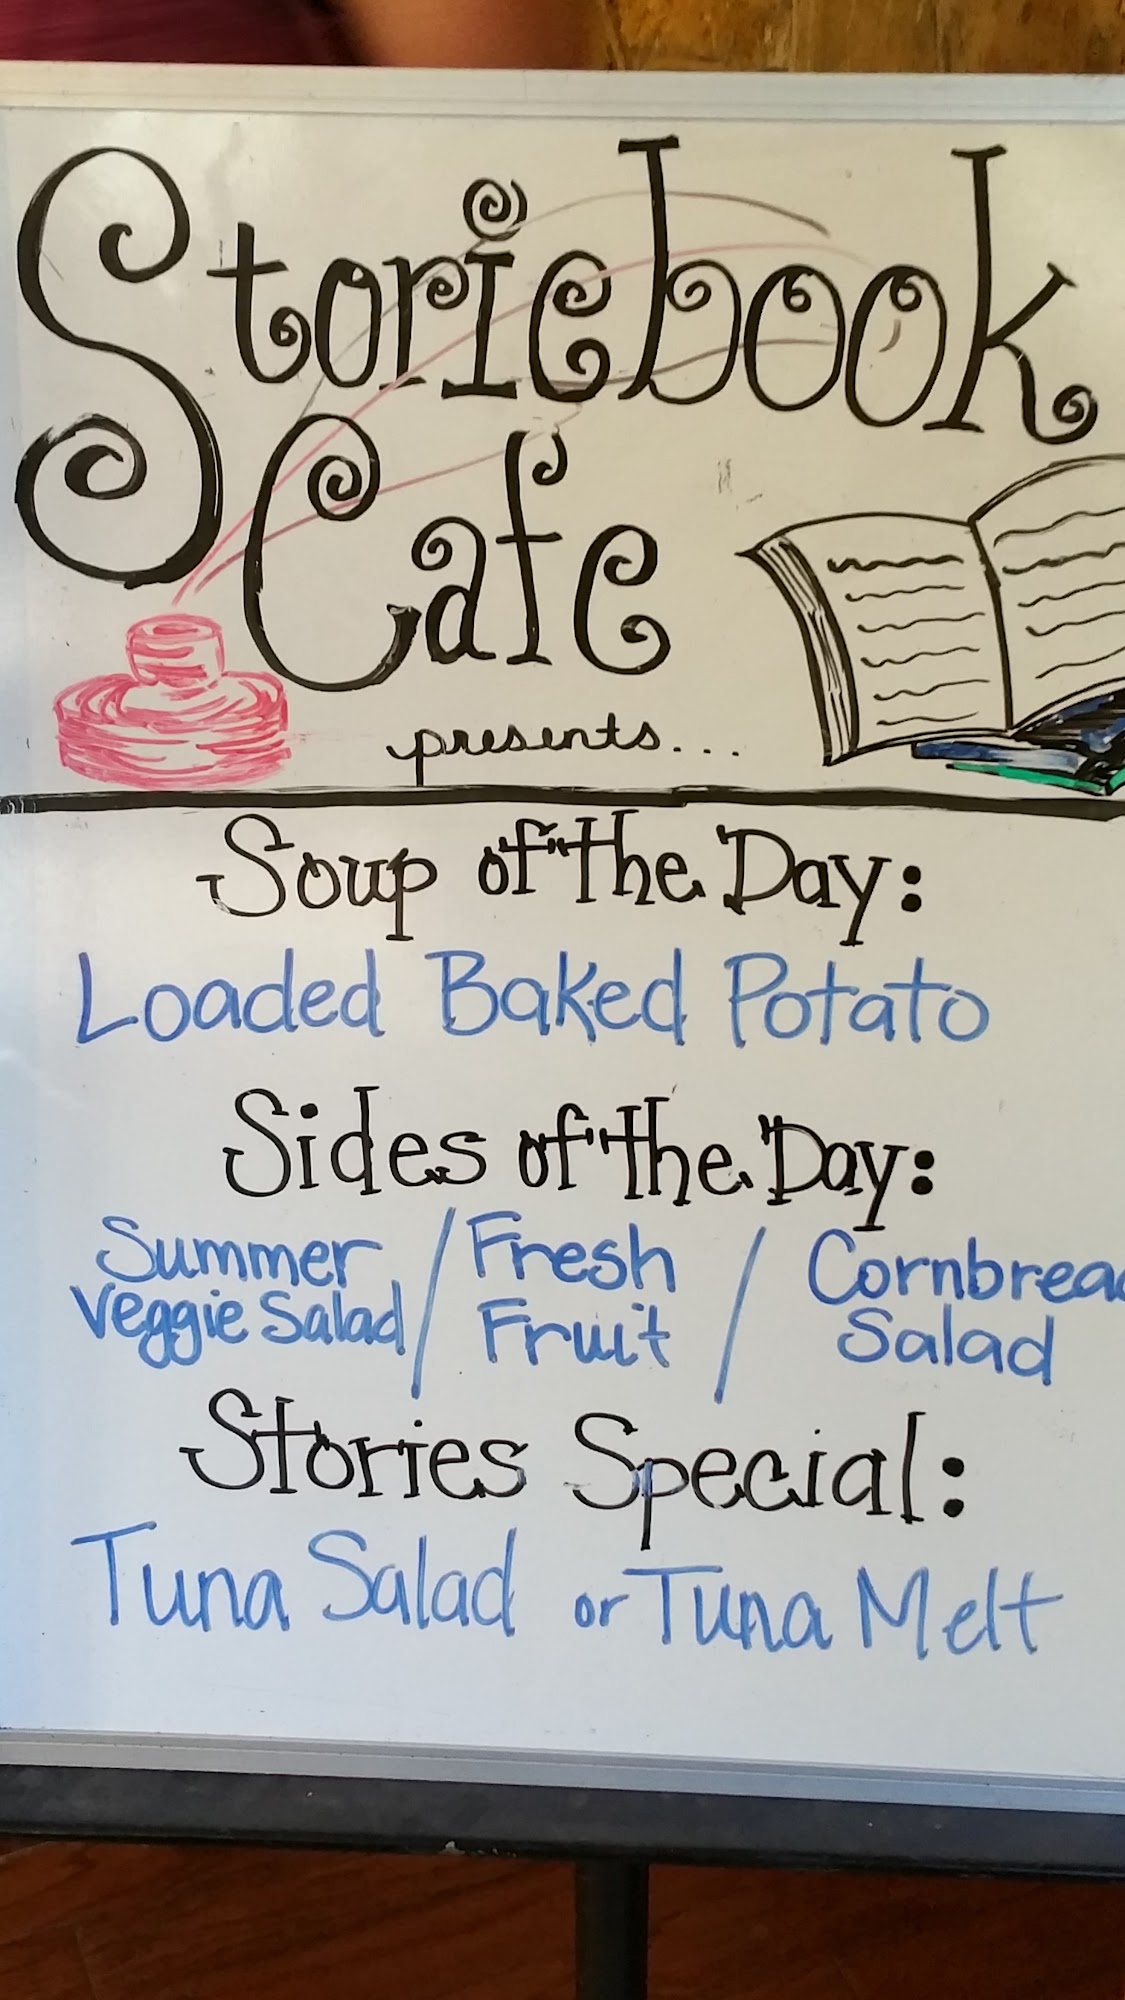 Storiebook
Cafe
presents...
Soup of the Day:
Loaded Baked Potato
Sides of the Day:
Summer / Fresh / Cornbread
Veggie Salad Fruit Salad
Stories Special:
Tuna Salad or Tuna Melt